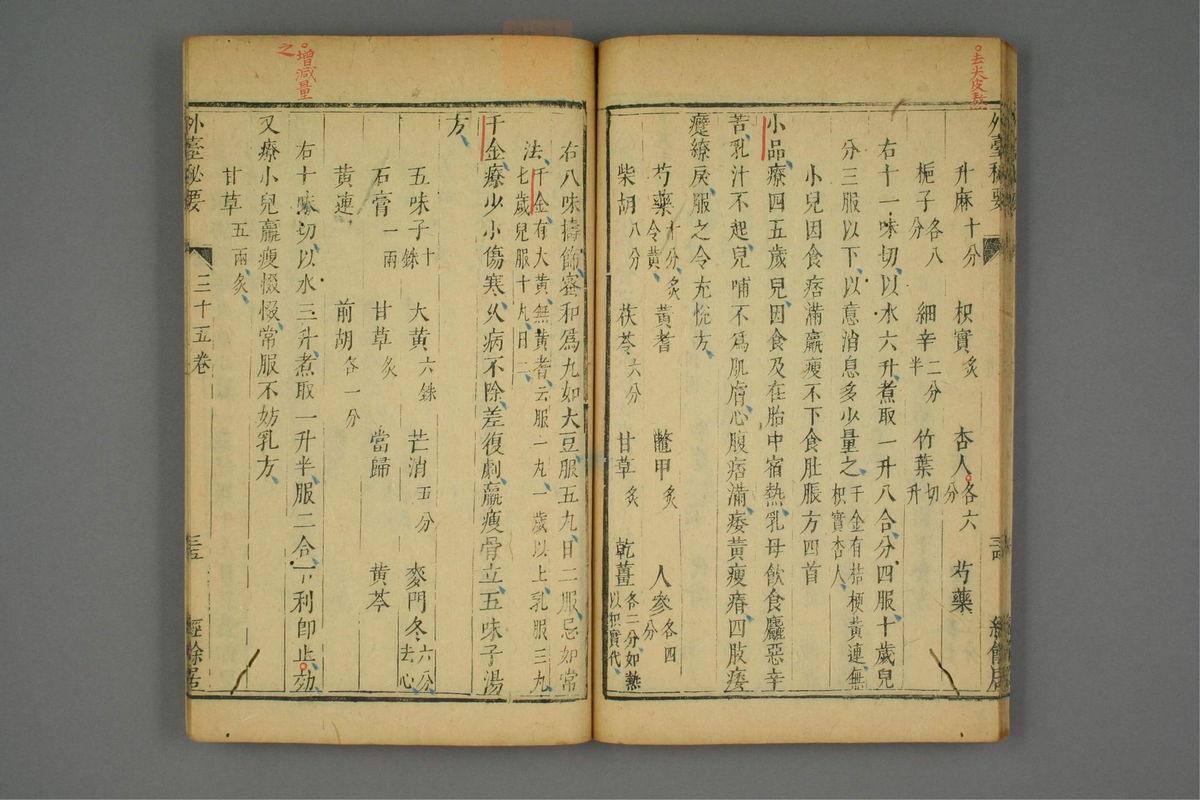 去尖皮熬
外臺秘要
升麻十分 枳實炙 杏人各六分 芍藥
梔子各八分 細辛二分半 竹葉切升
右十一味切以水六升煮取一升八合分四服十歲兒
分三服以下以意消息多少量之千金有桔梗黃連無枳實杏人
小兒因食痞滿羸瘦不下食肚脹方四首
小品療四五歲兒因食及在胎中宿熱乳母飲食麤惡辛
苦乳汁不起兒哺不爲肌膚心腹痞滿痿黃瘦瘠四肢痿
躄繚戾服之令充悅方
芍藥十分炙令黃 黃耆 鼈甲炙 人參各四分
柴胡八分 茯苓六分 甘草炙 乾薑各二分如熱以枳實代
右八味擣篩蜜和爲丸如大豆服五丸日二服忌如常
法千金有大黃無黃耆云服一丸一歲以上乳服三丸七歲兒服十丸日二
千金療少小傷寒久病不除差復劇羸瘦骨立五味子湯
方
五味子十銖 大黃六銖 芒消五分 麥門冬六分去心
石膏一兩 甘草炙 當歸 黃芩
黃連 前胡各一分
右十味切以水三升煮取一升半服二合下利即止効
又療小兒羸瘦惙惙常服不妨乳方
甘草五兩炙
外臺秘要 三十五卷 經餘居
增減量之